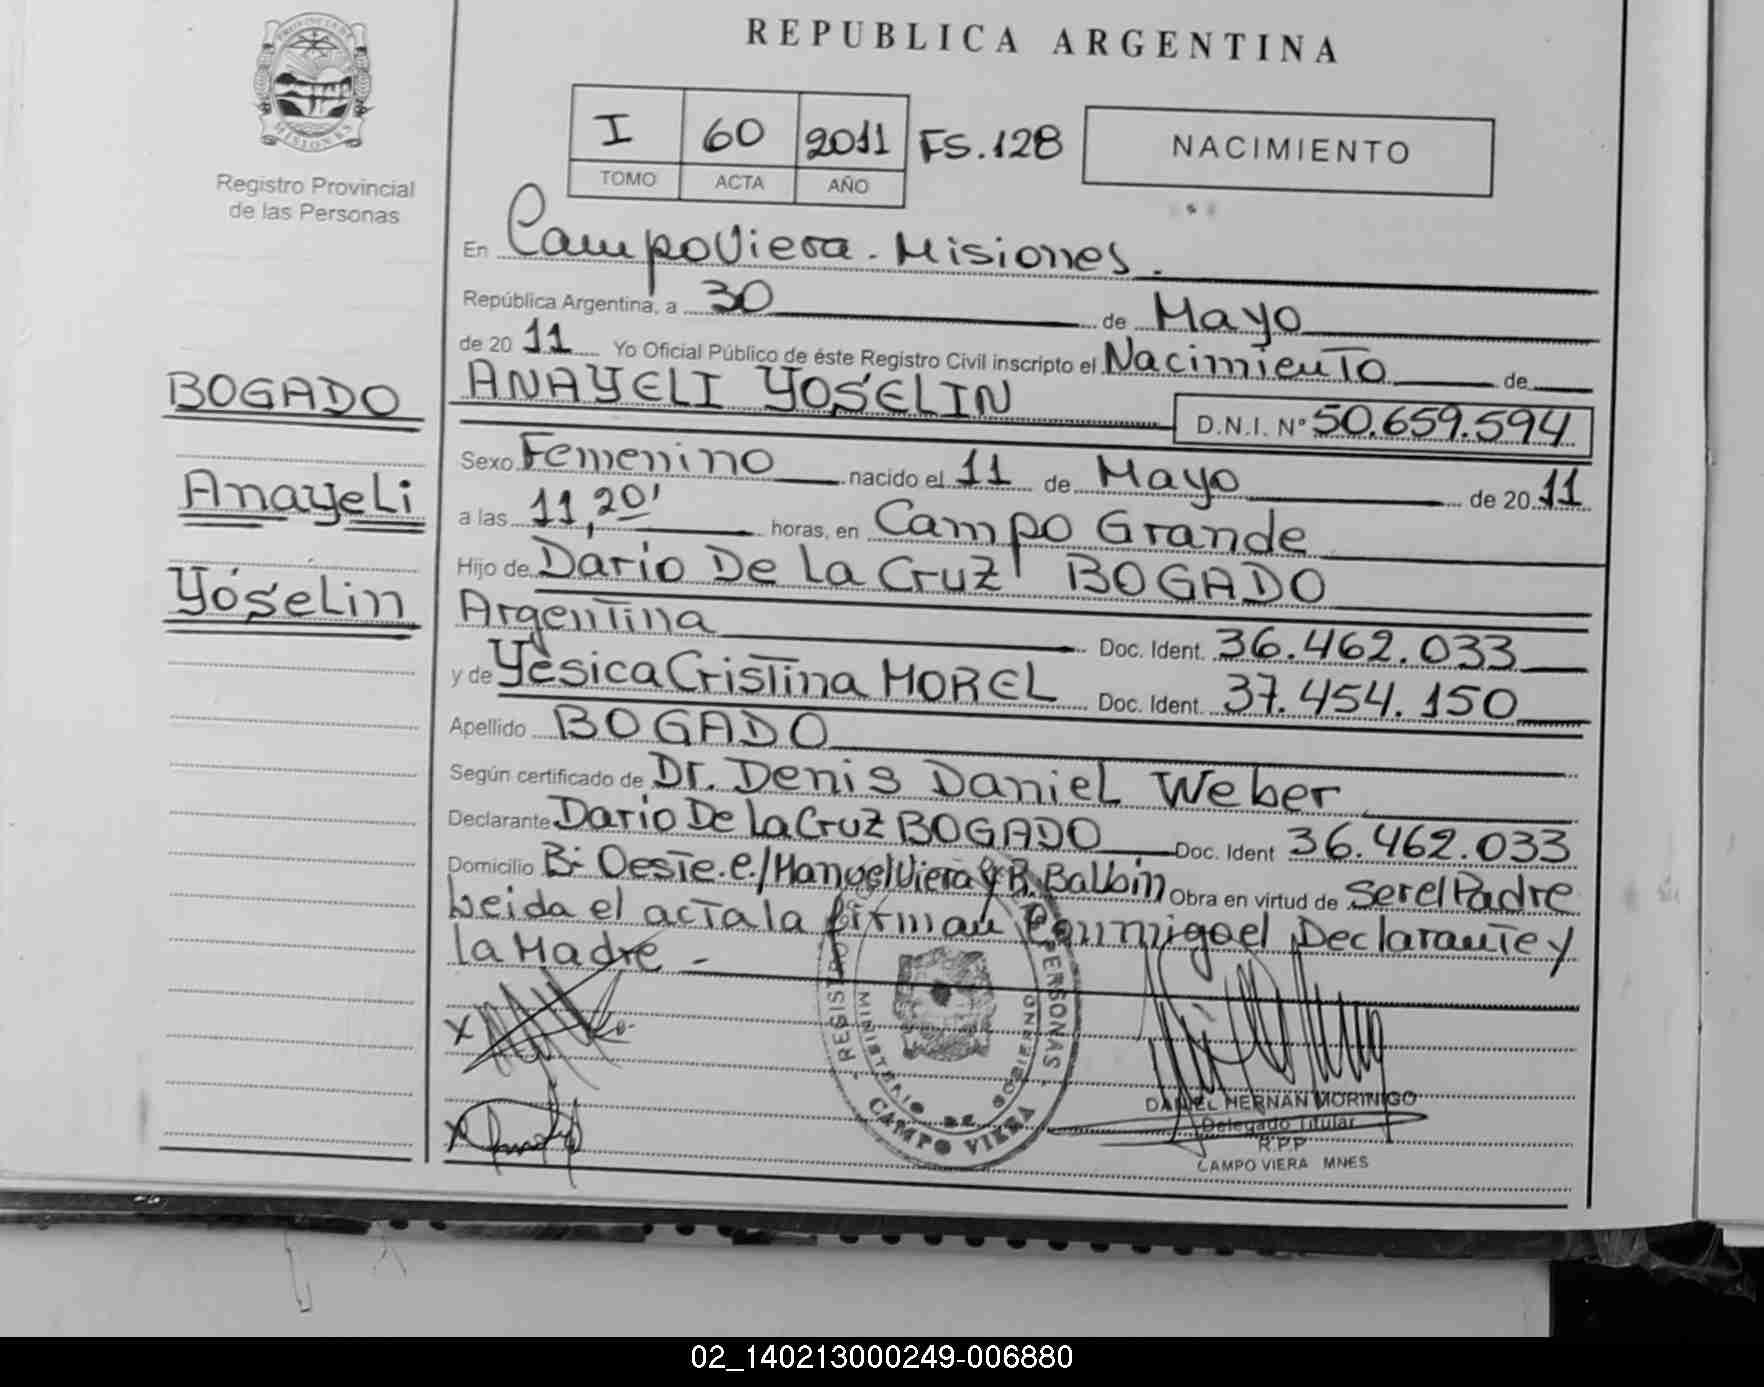 REPUBLICA ARGENTINA
PROVINCIA DE
MISIONES
Registro Provincial
de las Personas
I 60 2011 FS.128
TOMO ACTA AÑO
NACIMIENTO
En Campo Viera. Misiones.
República Argentina, a 30 de Mayo
de 20 11 Yo Oficial Público de éste Registro Civil inscripto el Nacimiento de
ANAYELI YOSELIN D.N.I. N° 50.659.594
Sexo Femenino nacido el 11 de Mayo de 20 11
a las 11,20' horas, en Campo Grande
Hijo de Dario De La Cruz BOGADO
Argentina Doc. Ident. 36.462.033
y de Yésica Cristina MOREL Doc. Ident. 37.454.150
Apellido BOGADO
Según certificado de Dr. Denis Daniel Weber
Declarante Dario De La Cruz BOGADO Doc. Ident 36.462.033
Domicilio B: Oeste. e/Manuel Viera y R. Balbin Obra en virtud de Ser el Padre
Leida el acta la firman Conmigo el Declarante y
la Madre -
BOGADO
Anayeli
Yóselin
X
X
REGISTRO PERSONAS
MINISTERIO DE GOBIERNO
CAMPO VIERA
DANIEL HERNAN MORINIGO
Delegado Titular
R.P.P
CAMPO VIERA MNES
02_140213000249-006880